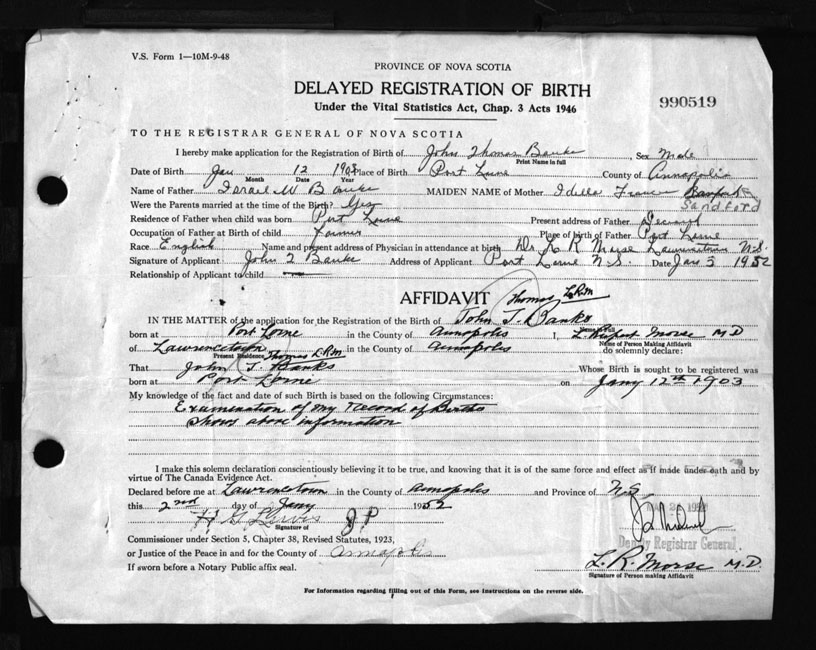 V.S. Form 1—10M-9-48
PROVINCE OF NOVA SCOTIA
DELAYED REGISTRATION OF BIRTH
Under the Vital Statistics Act, Chap. 3 Acts 1946
990519
TO THE REGISTRAR GENERAL OF NOVA SCOTIA
I hereby make application for the Registration of Birth of John Thomas Banks, Sex Male
Print Name in full
Date of Birth Jan 12 1903 Place of Birth Port Lorne County of Annapolis
Month Date Year
Name of Father Israel W Banks MAIDEN NAME of Mother Idella
Sandford
Were the Parents married at the time of the Birth? Yes
Residence of Father when child was born Port Lorne Present address of Father Deceased
Occupation of Father at Birth of child Farmer Place of birth of Father Port Lorne
Race English Name and present address of Physician in attendance at birth Dr L R Morse Lawrencetown N.S.
Signature of Applicant John T Banks Address of Applicant Port Lorne N.S. Date Jan 3 1952
Relationship of Applicant to child —
AFFIDAVIT Thomas L.R.M
IN THE MATTER of the application for the Registration of Birth of John T. Banks
born at Port Lorne in the County of Annapolis I, L. Rupert Morse M.D
Name of Person Making Affidavit
of Lawrencetown in the County of Annapolis do solemnly declare:
Present Residence Thomas L.R.M
That John T. Banks Whose Birth is sought to be registered was
born at Port Lorne on Jany 12th 1903
My knowledge of the fact and date of such Birth is based on the following Circumstances:
Examination of my record of Births
shows above information
I make this solemn declaration conscientiously believing it to be true, and knowing that it is of the same force and effect as if made under oath and by
virtue of The Canada Evidence Act.
Declared before me at Lawrencetown in the County of Annapolis and Province of N.S.
this 2nd day of Jany 1952
H G Lewis J P
Signature of
Commissioner under Section 5, Chapter 38, Revised Statutes, 1923,
Deputy Registrar General
or Justice of the Peace in and for the County of Annapolis
L. R. Morse M.D.
If sworn before a Notary Public affix seal.
Signature of Person making Affidavit
For Information regarding filling out of this Form, see instructions on the reverse side.